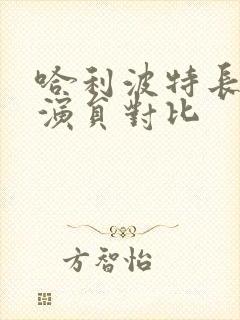 哈利波特長
演員對比
方智怡